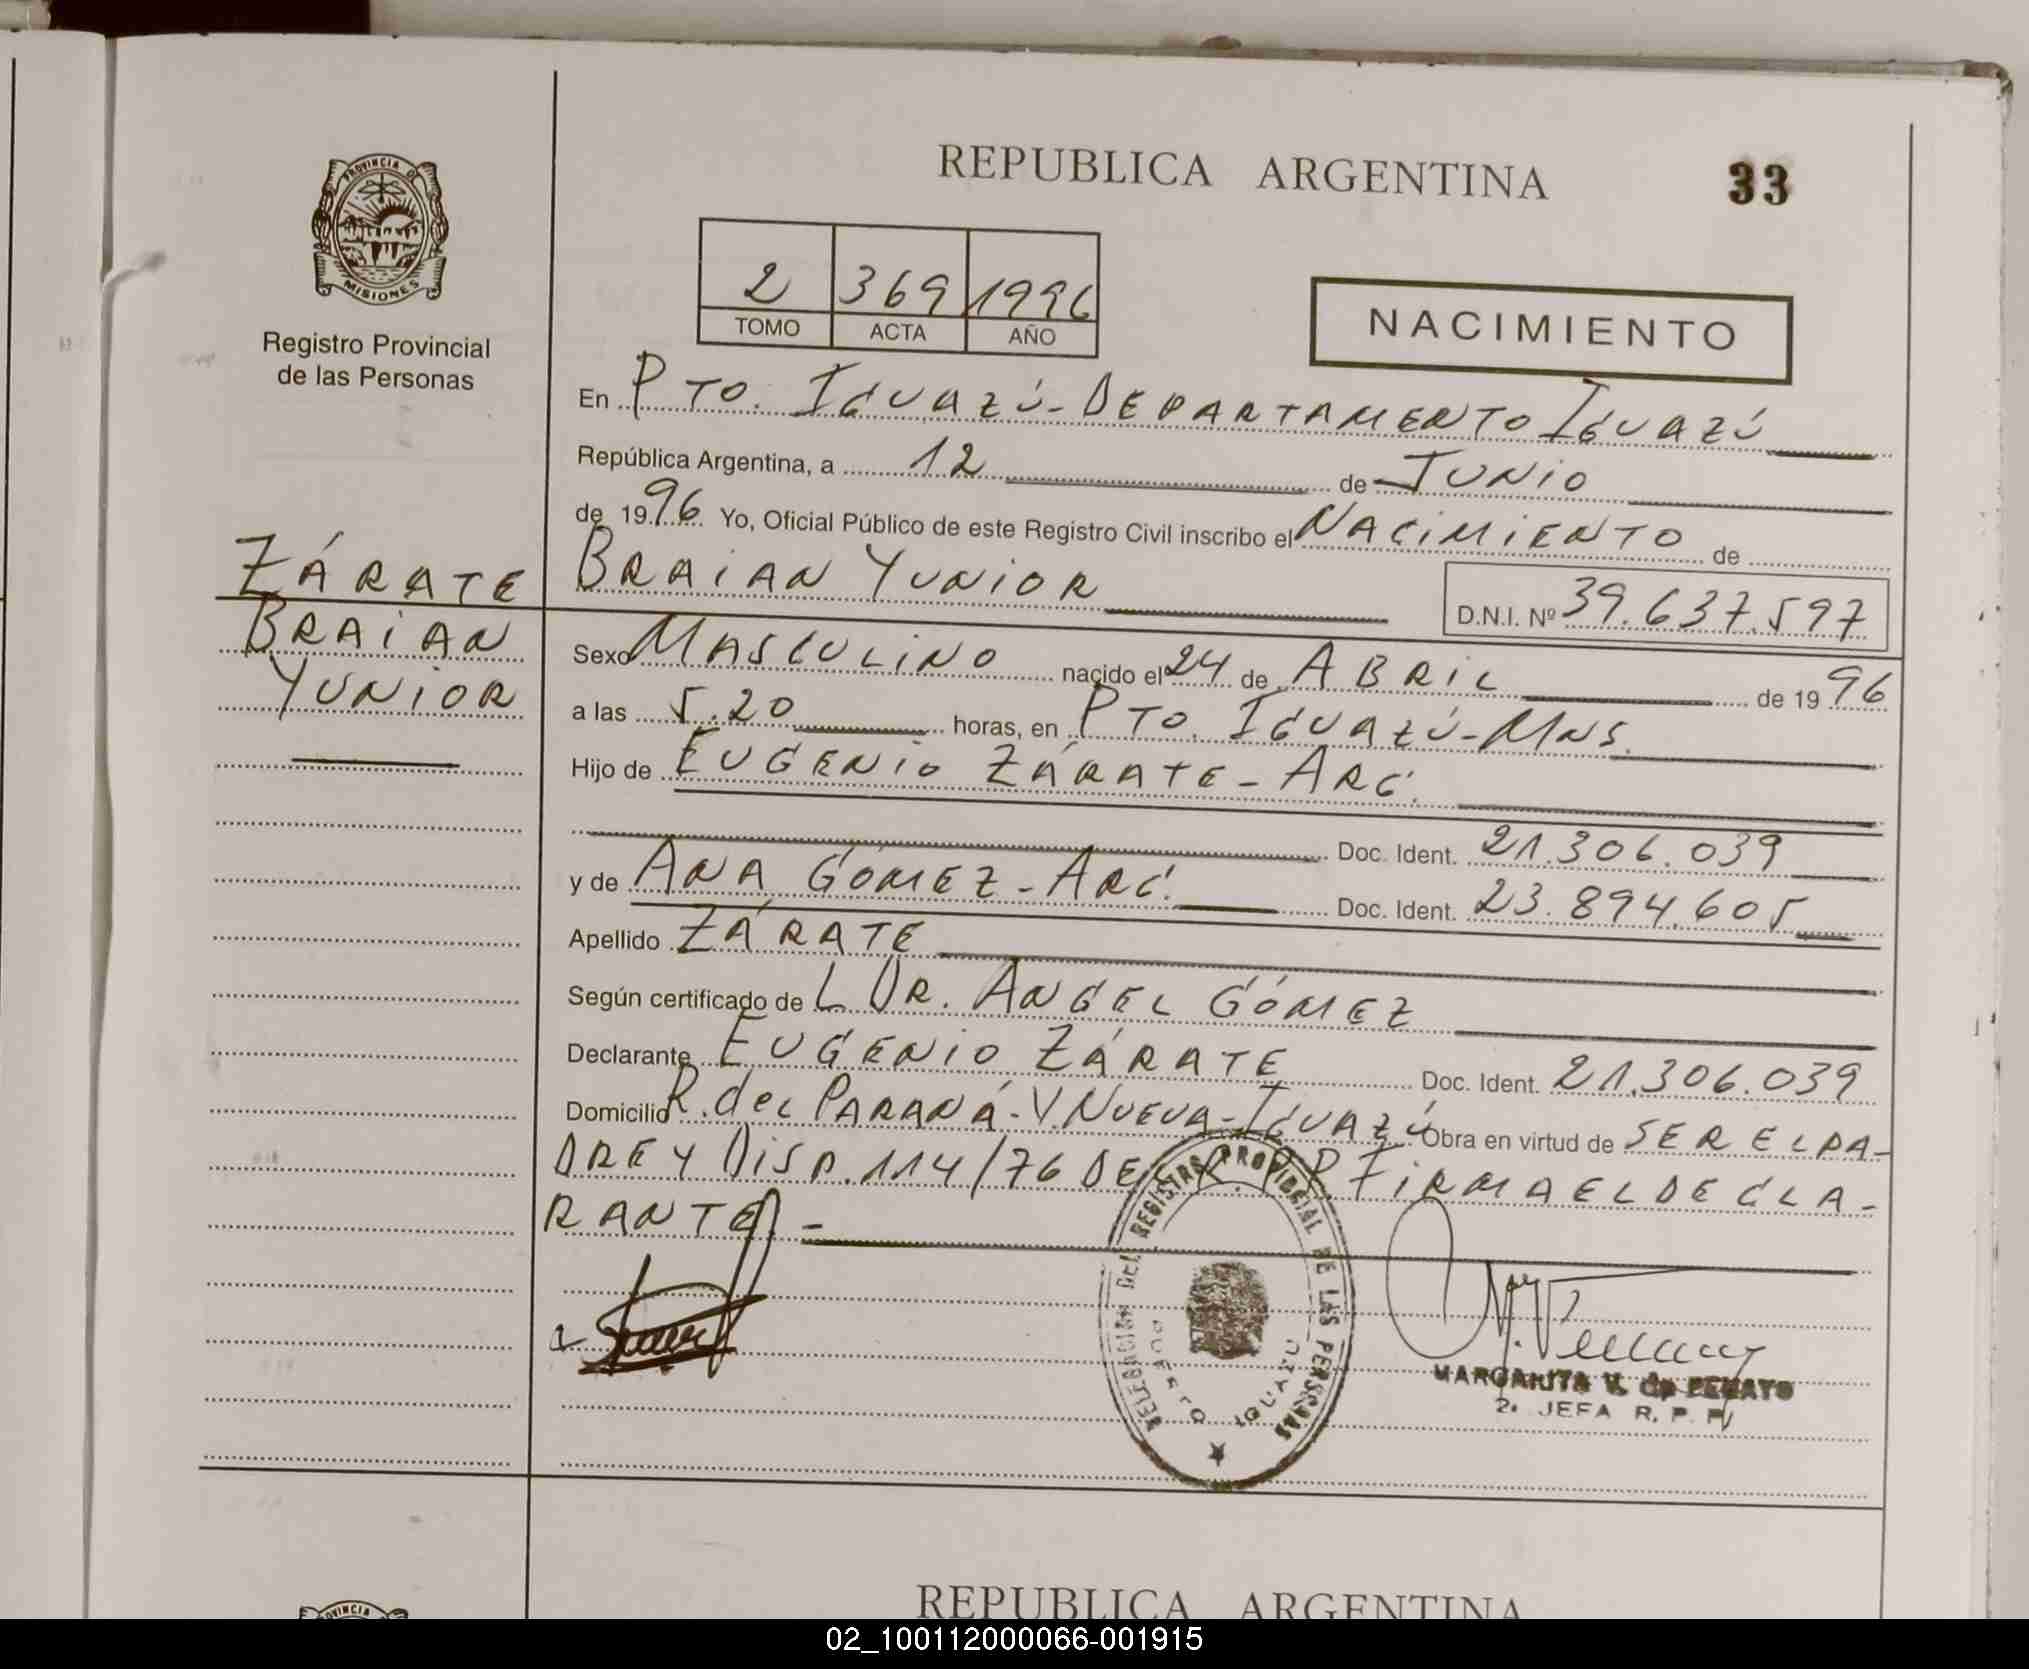 REPUBLICA ARGENTINA
33
PROVINCIA D
MISIONES
Registro Provincial
de las Personas
2 369 1996
TOMO ACTA AÑO
NACIMIENTO
En PTO. IGUAZÚ-DEPARTAMENTO IGUAZÚ
República Argentina, a 12 de JUNIO
de 1996 Yo, Oficial Público de este Registro Civil inscribo el NACIMIENTO de
ZÁRATE
BRAIAN
YUNIOR
BRAIAN YUNIOR
D.N.I. Nº 39.637.597
Sexo MASCULINO nacido el 24 de ABRIL de 1996
a las 5.20 horas, en PTO. IGUAZÚ-MNS.
Hijo de EUGENIO ZÁRATE-ARG.
Doc. Ident. 21.306.039
y de ANA GÓMEZ-ARG. Doc. Ident. 23.894.605
Apellido ZÁRATE
Según certificado de L DR. ANGEL GÓMEZ
Declarante EUGENIO ZÁRATE Doc. Ident. 21.306.039
Domicilio R. del PARANÁ-V. NUEVA-IGUAZÚ Obra en virtud de SER EL PA-
DRE Y DISP. 114/76 DEL R.P.P. FIRMA EL DECLA-
RANTE.-
DELEGACION DEL REGISTRO PROVINCIAL DE LAS PERSONAS
PUERTO IGUAZU
MARGARITA V. de
2. JEFA R. P. P.
REPUBLICA ARGENTINA
VINCIA
02_100112000066-001915